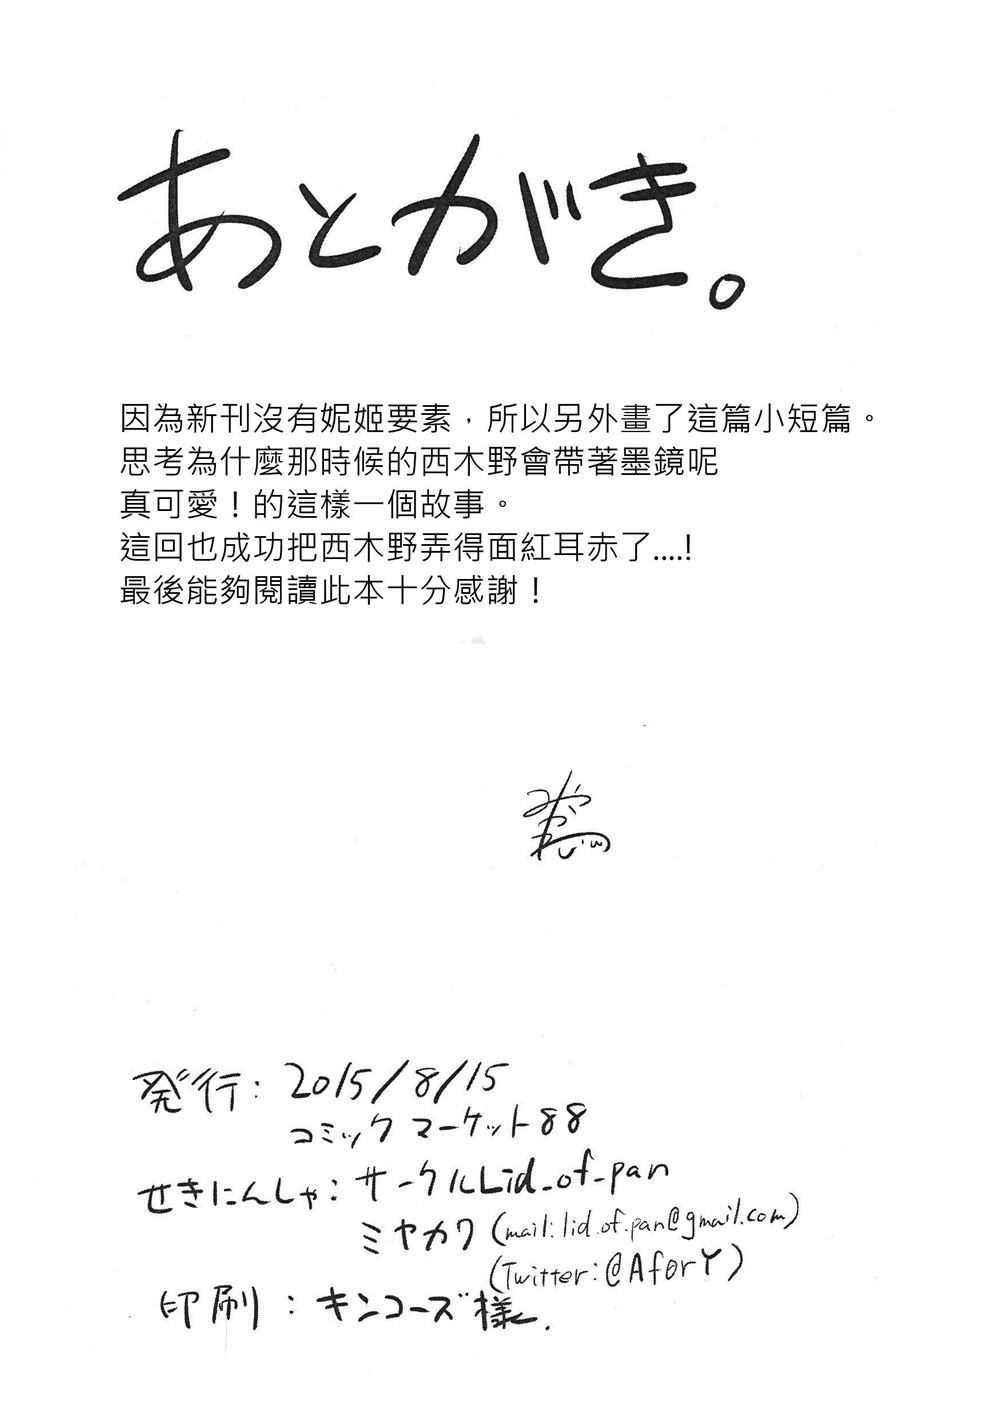 あとがき。
因為新刊沒有妮姬要素，所以另外畫了這篇小短篇。
思考為什麼那時候的西木野會帶著墨鏡呢
真可愛！的這樣一個故事。
這回也成功把西木野弄得面紅耳赤了....!
最後能夠閱讀此本十分感謝！
発行：2015/8/15
コミックマーケット88
せきにんしゃ：サークルLid_of_pan
ミヤカワ(mail:lid.of.pan@gmail.com)
(Twitter:@AforY)
印刷：キンコーズ様.